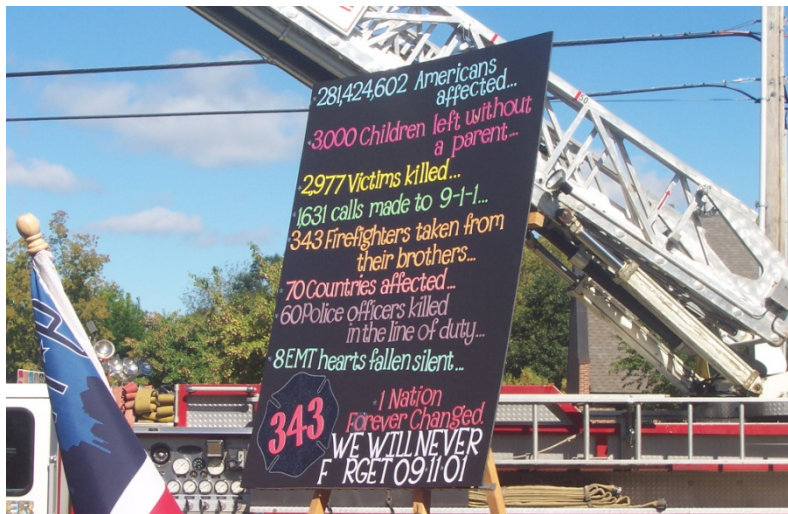 281,424,602 Americans
affected...
3,000 Children left without
a parent...
2,977 Victims killed...
1,631 calls made to 9-1-1...
343 Firefighters taken from
their brothers...
70 Countries affected...
60 Police officers killed
in the line of duty...
8 EMT hearts fallen silent...
343
1 Nation
Forever Changed.
WE WILL NEVER
F RGET 09·11·01
50